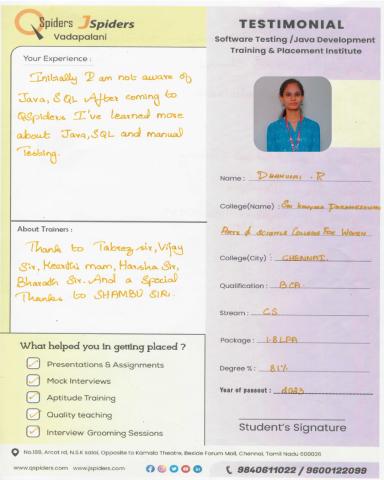 QSpiders JSpiders
Vadapalani
Your Experience :
Initially I am not aware of
Java, SQL After coming to
QSpiders I've learned more
about Java, SQL and manual
Testing.
About Trainers :
Thank to Tabrez sir, Vijay
Sir, Keerthi mam, Harsha Sir,
Bharath Sir. And a Special
Thanks to SHAMBU SIR.
What helped you in getting placed ?
Presentations & Assignments
Mock Interviews
Aptitude Training
Quality teaching
Interview Grooming Sessions
TESTIMONIAL
Software Testing /Java Development
Training & Placement Institute
Name : R
College(Name) : Sri
Arts & Science College For Women
College(City) : CHENNAI.
Qualification : BCA
Stream : CS
Package : 1.8LPA
Degree % : 81%
Year of passout : 2023
Student's Signature
No.189, Arcot rd, N.S.K salai, Opposite to Kamala Theatre, Beside Forum Mall, Chennai, Tamil Nadu 600026
www.qspiders.com www.jspiders.com
9840611022 / 9600122099